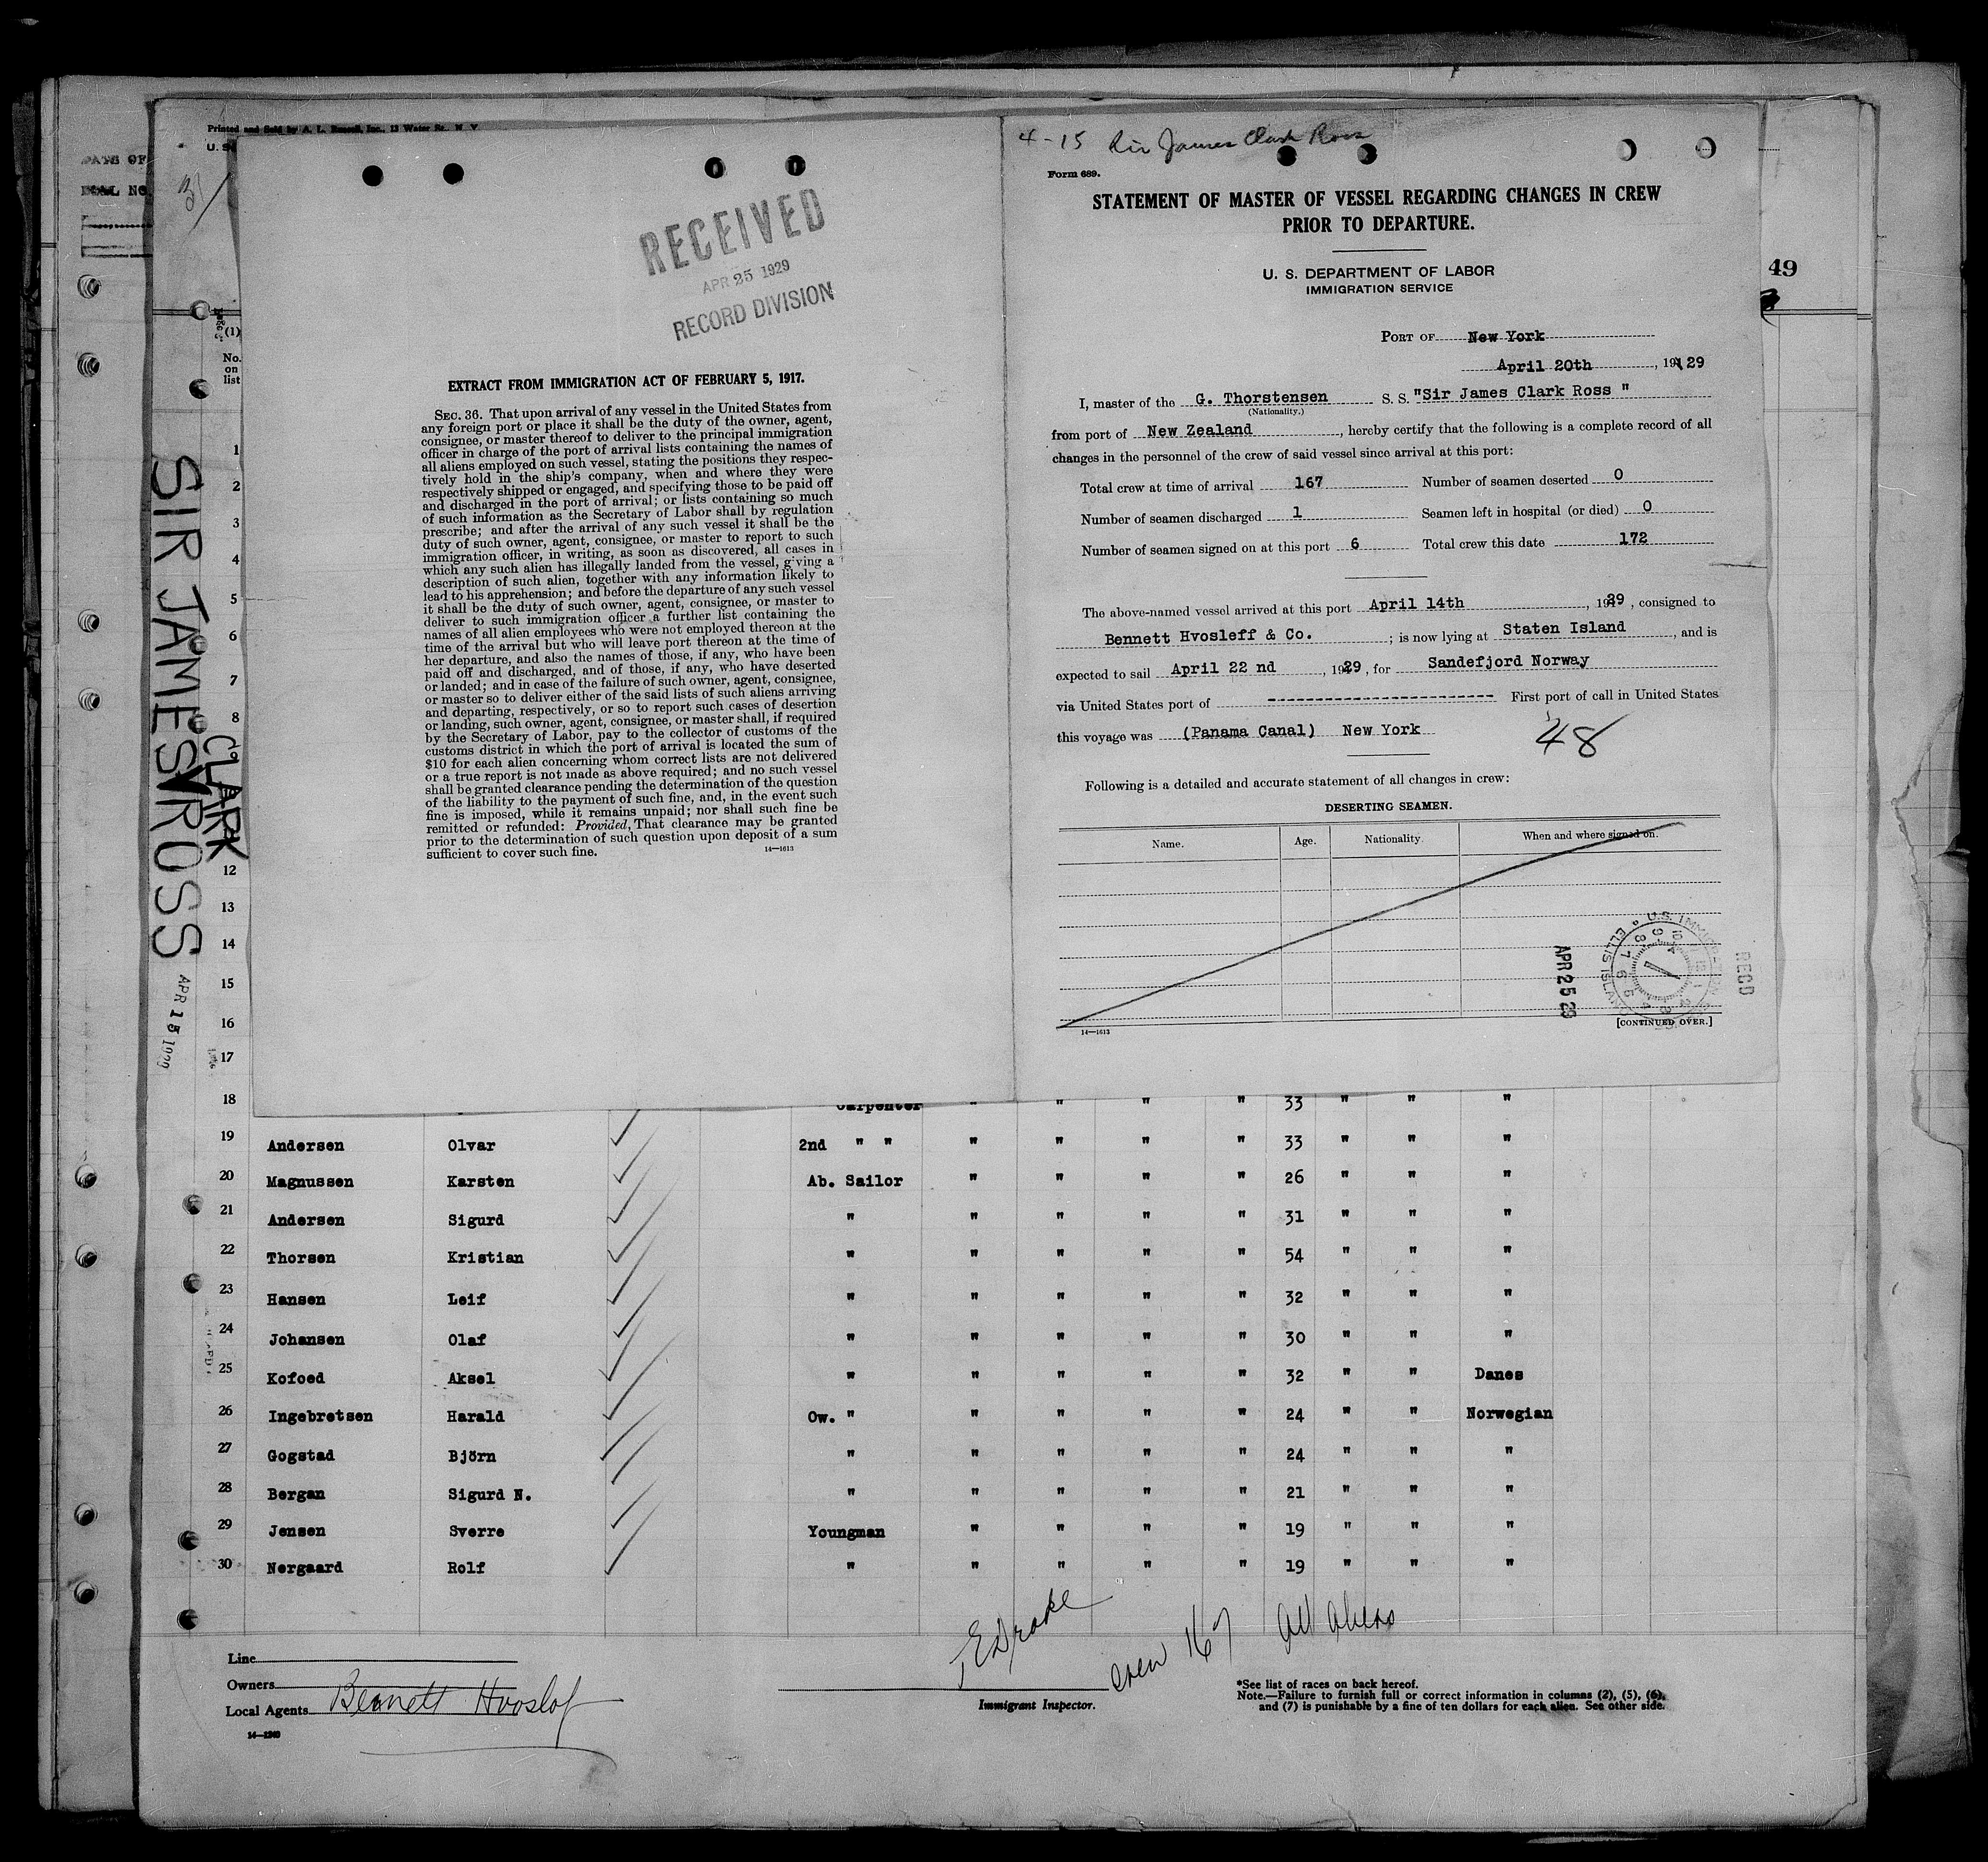 Printed and Sold by A. L. Russell, Inc., 13 Water St. N Y
DATE OF
49
SIR JAMES CLARK ROSS
APR 15 1929
(1)
No.
on
list
1
2
3
4
5
6
7
8
12
13
14
15
16
17
RECEIVED
APR 25 1929
RECORD DIVISION
EXTRACT FROM IMMIGRATION ACT OF FEBRUARY 5, 1917.
SEC. 36. That upon arrival of any vessel in the United States from
any foreign port or place it shall be the duty of the owner, agent,
consignee, or master thereof to deliver to the principal immigration
officer in charge of the port of arrival lists containing the names of
all aliens employed on such vessel, stating the positions they respec-
tively hold in the ship's company, when and where they were
respectively shipped or engaged, and specifying those to be paid off
and discharged in the port of arrival; or lists containing so much
of such information as the Secretary of Labor shall by regulation
prescribe; and after the arrival of any such vessel it shall be the
duty of such owner, agent, consignee, or master to report to such
immigration officer, in writing, as soon as discovered, all cases in
which any such alien has illegally landed from the vessel, giving a
description of such alien, together with any information likely to
lead to his apprehension; and before the departure of any such vessel
it shall be the duty of such owner, agent, consignee, or master to
deliver to such immigration officer a further list containing the
names of all alien employees who were not employed thereon at the
time of the arrival but who will leave port thereon at the time of
her departure, and also the names of those, if any, who have been
paid off and discharged, and of those, if any, who have deserted
or landed; and in case of the failure of such owner, agent, consignee,
or master so to deliver either of the said lists of such aliens arriving
and departing, respectively, or so to report such cases of desertion
or landing, such owner, agent, consignee, or master shall, if required
by the Secretary of Labor, pay to the collector of customs of the
customs district in which the port of arrival is located the sum of
$10 for each alien concerning whom correct lists are not delivered
or a true report is not made as above required; and no such vessel
shall be granted clearance pending the determination of the question
of the liability to the payment of such fine, and, in the event such
fine is imposed, while it remains unpaid; nor shall such fine be
remitted or refunded: Provided, That clearance may be granted
prior to the determination of such question upon deposit of a sum
sufficient to cover such fine. 14—1613
4-15 Sir James Clark Ross
Form 689.
STATEMENT OF MASTER OF VESSEL REGARDING CHANGES IN CREW
PRIOR TO DEPARTURE.
U. S. DEPARTMENT OF LABOR
IMMIGRATION SERVICE
PORT OF New York
April 20th, 19129
I, master of the G. Thorstensen S. S. "Sir James Clark Ross "
(Nationality.)
from port of New Zealand, hereby certify that the following is a complete record of all
changes in the personnel of the crew of said vessel since arrival at this port:
Total crew at time of arrival 167 Number of seamen deserted 0
Number of seamen discharged 1 Seamen left in hospital (or died) 0
Number of seamen signed on at this port 6 Total crew this date 172
The above-named vessel arrived at this port April 14th, 1929, consigned to
Bennett Hvosleff & Co.; is now lying at Staten Island, and is
expected to sail April 22 nd, 1929, for Sandefjord Norway
via United States port of First port of call in United States
this voyage was (Panama Canal) New York
48
Following is a detailed and accurate statement of all changes in crew:
DESERTING SEAMEN.
Name. Age. Nationality. When and where signed on.
APR 25 29
RECD
14—1613 [CONTINUED OVER.]
18 Carpenter " " " " 33 " " "
19 Andersen Olvar 2nd " " " " " " 33 " " "
20 Magnussen Karsten Ab. Sailor " " " " 26 " " "
21 Andersen Sigurd " " " " " 31 " " "
22 Thorsen Kristian " " " " " 54 " " "
23 Hansen Leif " " " " " 32 " " "
24 Johansen Olaf " " " " " 30 " " "
25 Kofoed Aksel " " " " " 32 " " Danes
26 Ingebretsen Harald Ow. " " " " " 24 " " Norwegian
27 Gogstad Björn " " " " " 24 " " "
28 Bergan Sigurd N. " " " " " 21 " " "
29 Jensen Sverre Youngman " " " " 19 " " "
30 Nergaard Rolf " " " " " 19 " " "
Line
Owners
Local Agents Bennett Hvoslef
14—1240
Drake
Immigrant Inspector.
Crew 167 All aliens
*See list of races on back hereof.
Note.—Failure to furnish full or correct information in columns (2), (5), (6),
and (7) is punishable by a fine of ten dollars for each alien. See other side.